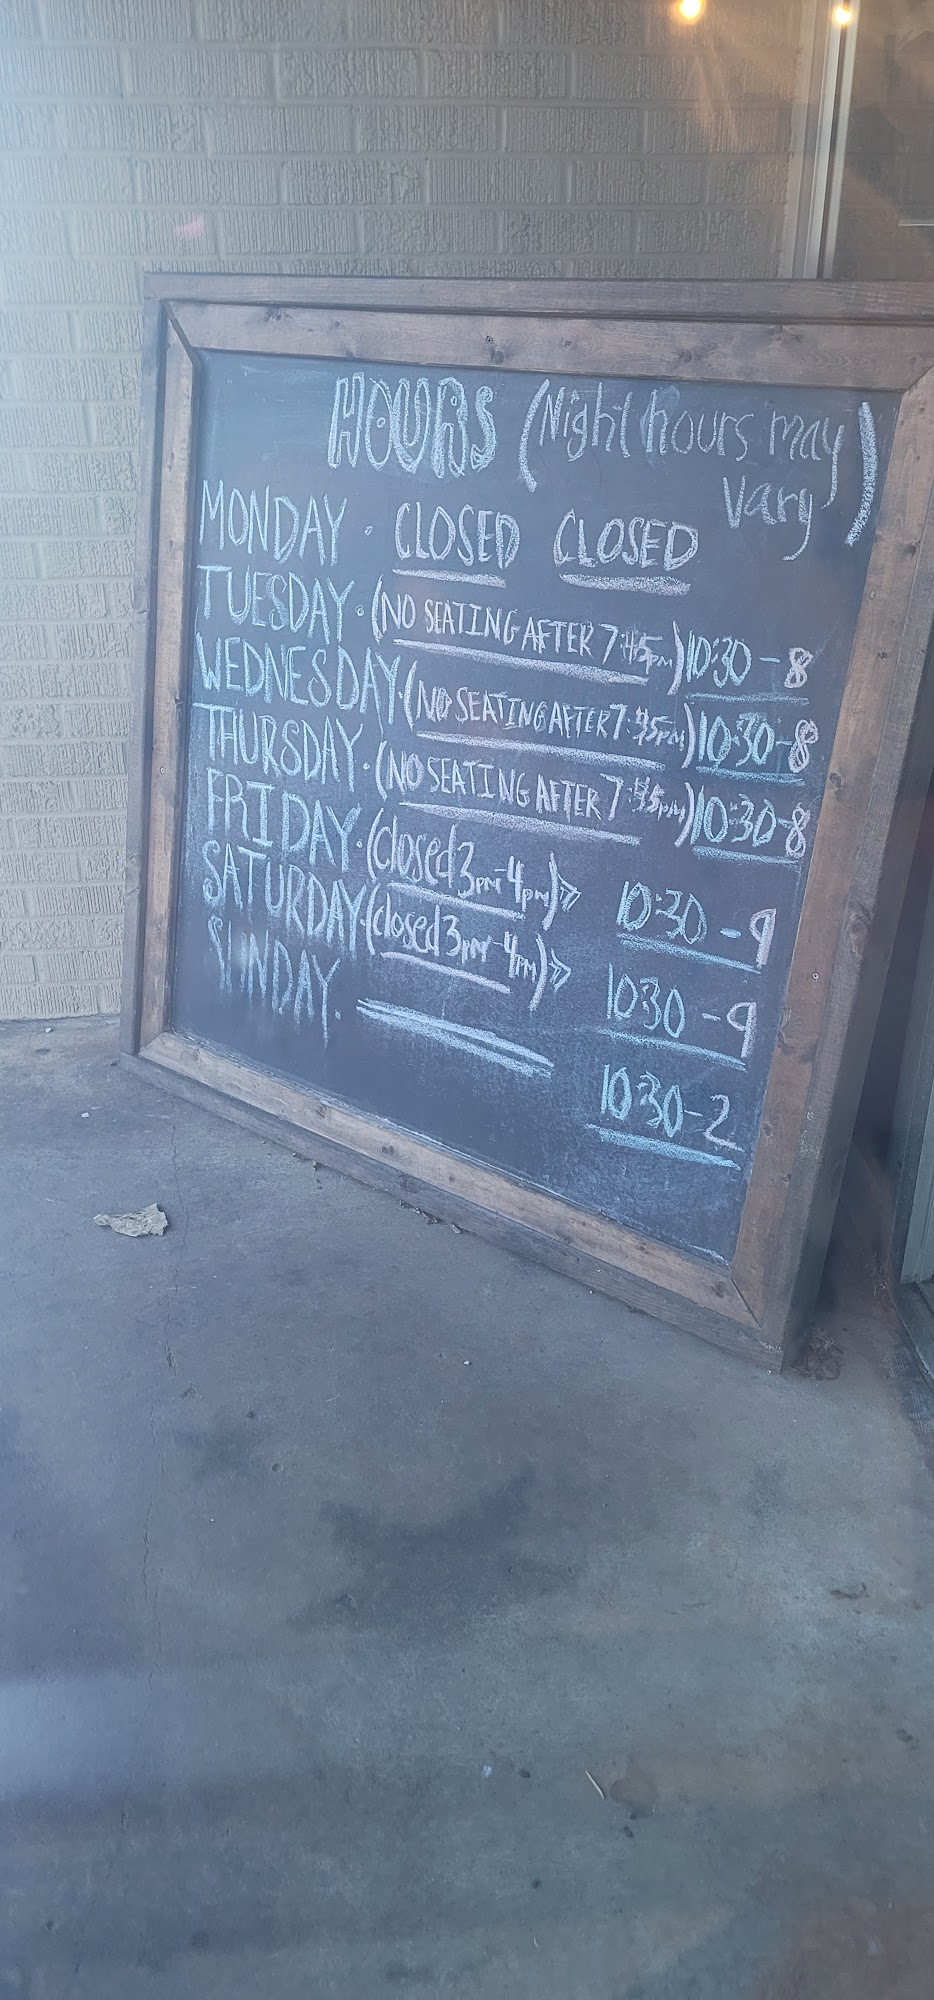 HOURS (Night hours may
vary)
MONDAY · CLOSED CLOSED
TUESDAY · (NO SEATING AFTER 7:45pm) 10:30 - 8
WEDNESDAY · (NO SEATING AFTER 7:45pm) 10:30 - 8
THURSDAY · (NO SEATING AFTER 7:45pm) 10:30 - 8
FRIDAY · (closed 3pm - 4pm) » 10:30 - 9
SATURDAY · (closed 3pm - 4pm) » 10:30 - 9
SUNDAY · 10:30 - 2